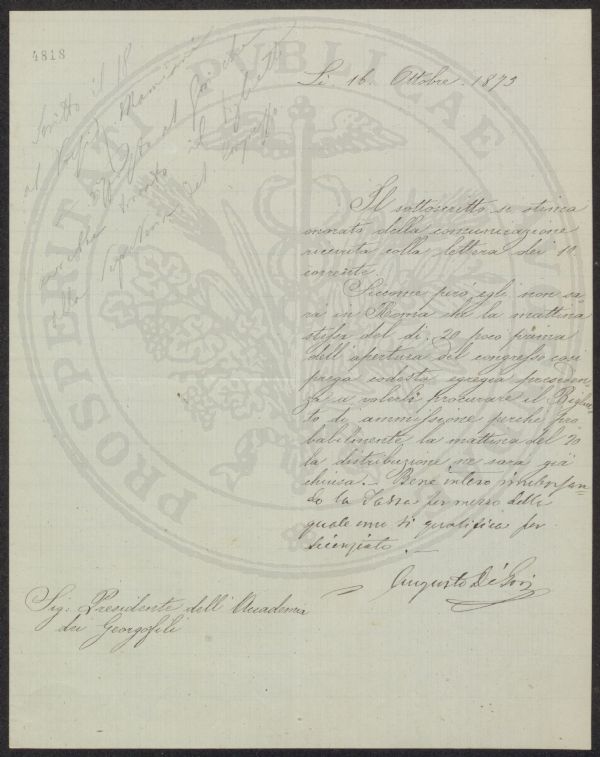 4818
PROSPERITATI PUBLICAE
Scritto il 18
al
che
il biglietto
avrebbe trovato
alla Segreteria del congresso
Li. 16. Ottobre. 1873
Il sottoscritto si stima
onorato della comunicazione
ricevuta colla lettera dei 10
corrente.
Siccome però egli non sa
rà in Roma che la mattina
stessa del dì. 20 poco prima
dell'apertura del congresso così
prega codesta egregia presiden
za a volerli procurare il Bigliet
to di ammissione perchè pro
babilmente la mattina del 20
la distribuzione ne sarà già
chiusa. — Bene inteso
do la Tassa per mezzo della
quale uno si qualifica per
.—
Augusto De' Gori
Sig: Presidente dell'Accademia
dei Georgofili